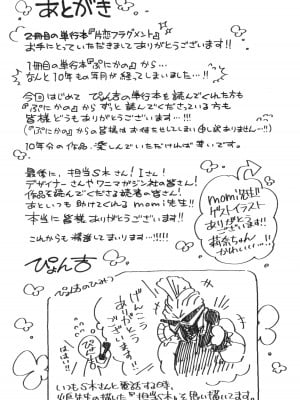 あとがき
2冊目の単行本『片恋フラグメント』
お手にとっていただきましてありがとうございます!!
1冊目の単行本『ぷにかの』から…
なんと10年もの年月が経ってしまいました…!!
今回はじめてぴょん吉の単行本を読んでくれた方も
『ぷにかの』からずっと読んでくださっている方も
皆様どうもありがとうございます…!!!
(『ぷにかの』からの皆様はお待たせしてしまい申し訳ありません…!!)
10年分の作品、楽しんでいただければ幸いです。
最後に、担当S木さん!Iさん!
デザイナーさんやワニマガジン社の皆さん!
作品を読んでくださる読者の皆さん!
あといつも助けてくれるmomi先生!!
本当に皆様ありがとうございます!!
これからも精進してまいります…!!!!
momi先生!!
ゲストイラスト
ありがとう
ございます!!
莉奈ちゃん
かわいい……!!
ぴょん吉
げんこう
ありがとう
ございますー!
ぴょん吉
はいー!!
いつもS木さんと電話する時、
先生の描いた『担当S木』を思い描いてます。